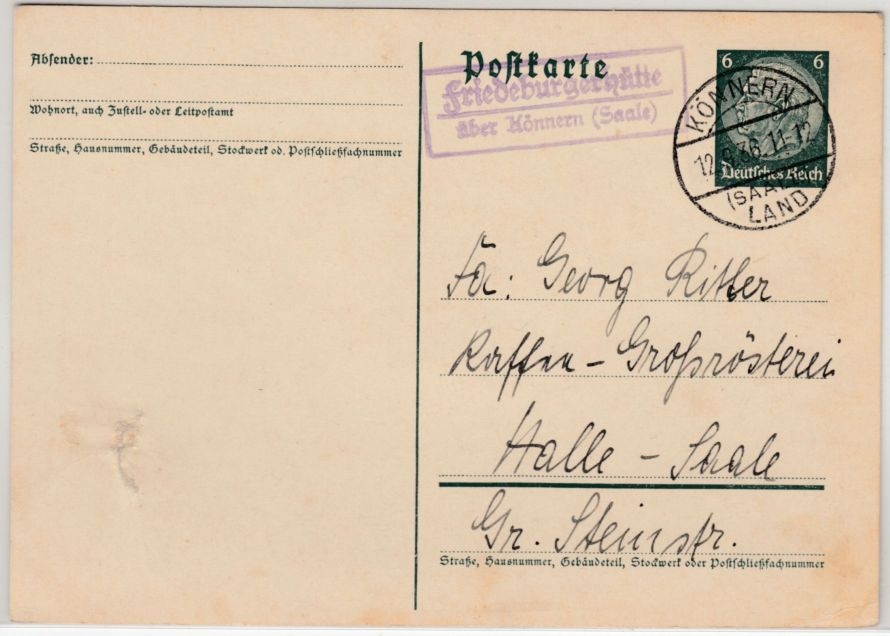 Absender:
Wohnort, auch Zustell- oder Leitpostamt
Straße, Hausnummer, Gebäudeteil, Stockwerk od. Postschließfachnummer
Postkarte
Friedeburgerhütte
über Könnern (Saale)
6 6
Deutsches Reich
KÖNNERN
12. .36.11-12
(SAALE)
LAND
Fa: Georg Ritter
Kaffee - Großrösterei
Halle - Saale
Gr. Steinstr.
Straße, Hausnummer, Gebäudeteil, Stockwerk oder Postschließfachnummer